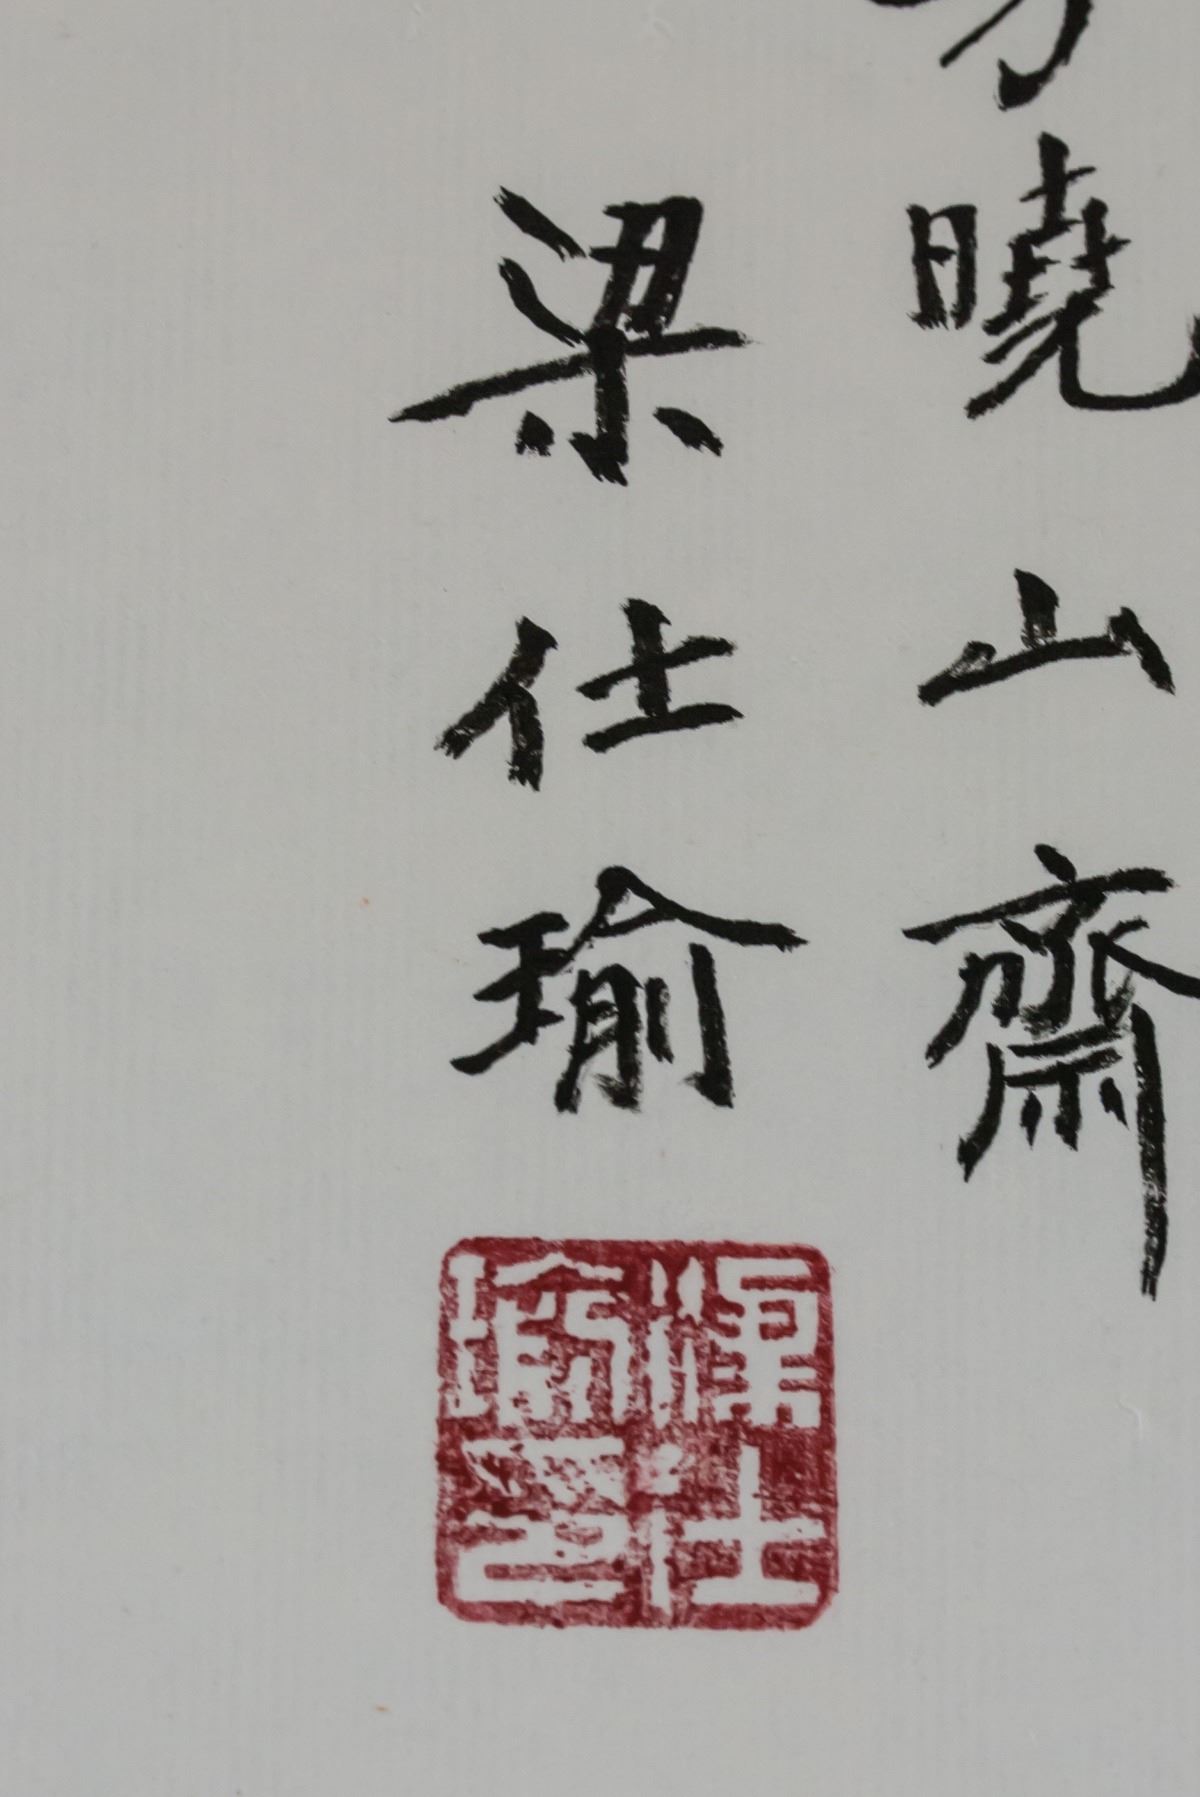 曉山齋
梁仕瑜
梁仕瑜印